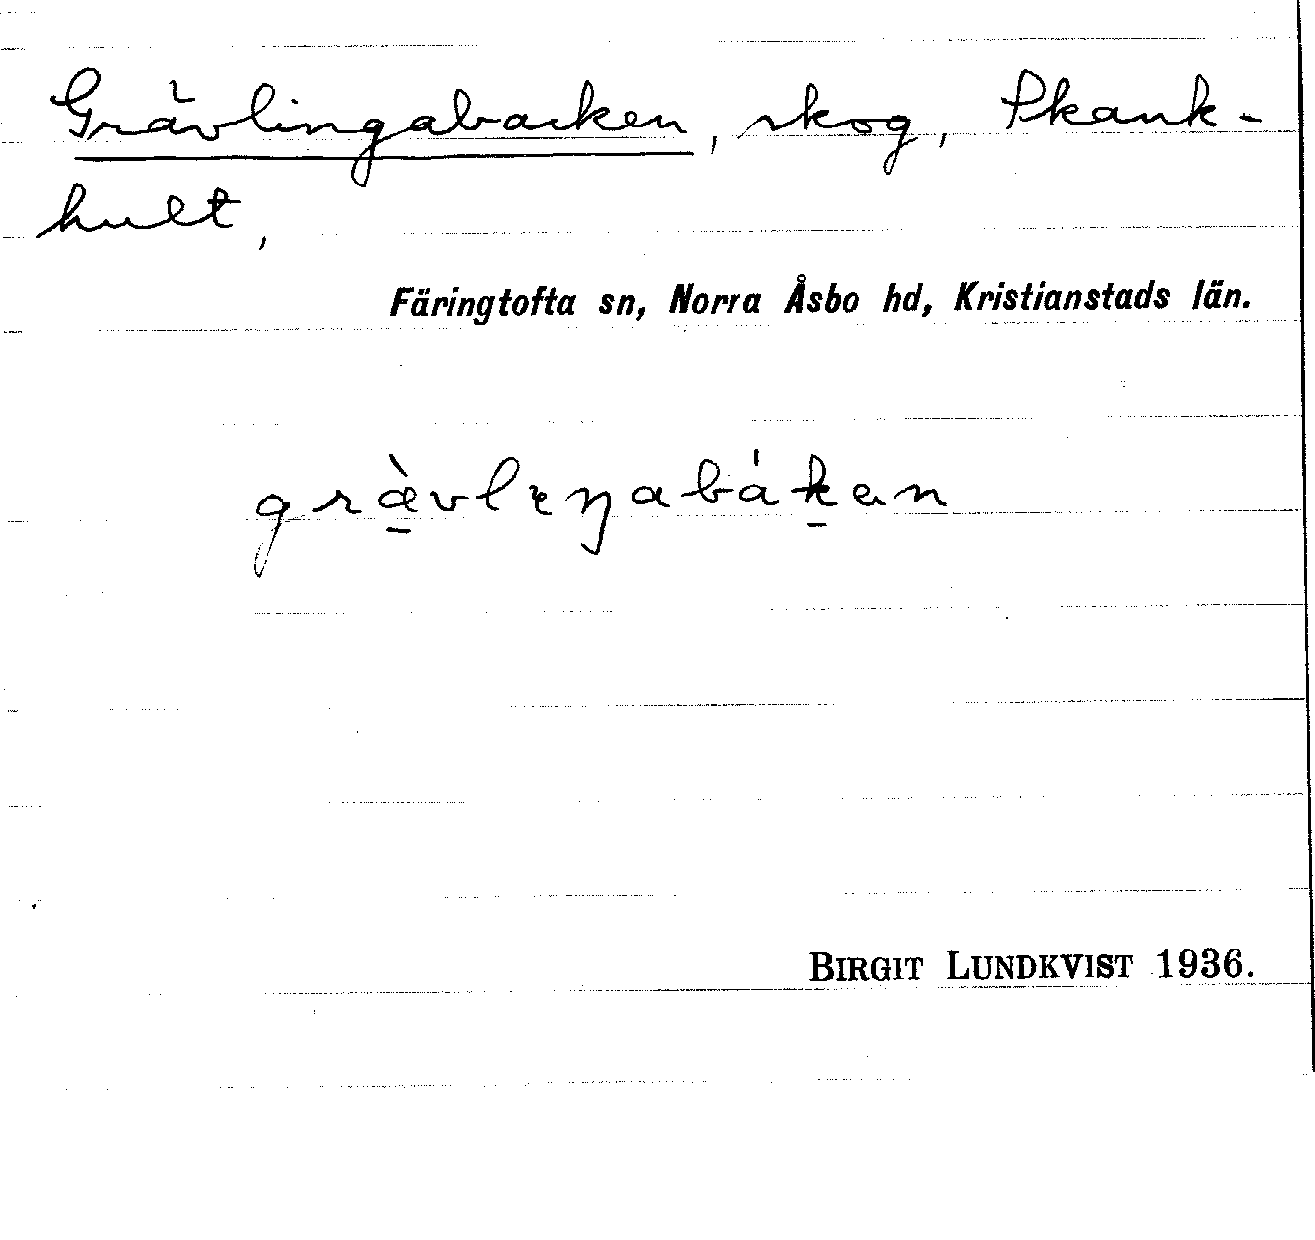 Grävlingabacken, skog, Skank-
hult,
Färingtofta sn, Norra Åsbo hd, Kristianstads län.
græ̱̀vlɪŋabáḵən
BIRGIT LUNDKVIST 1936.